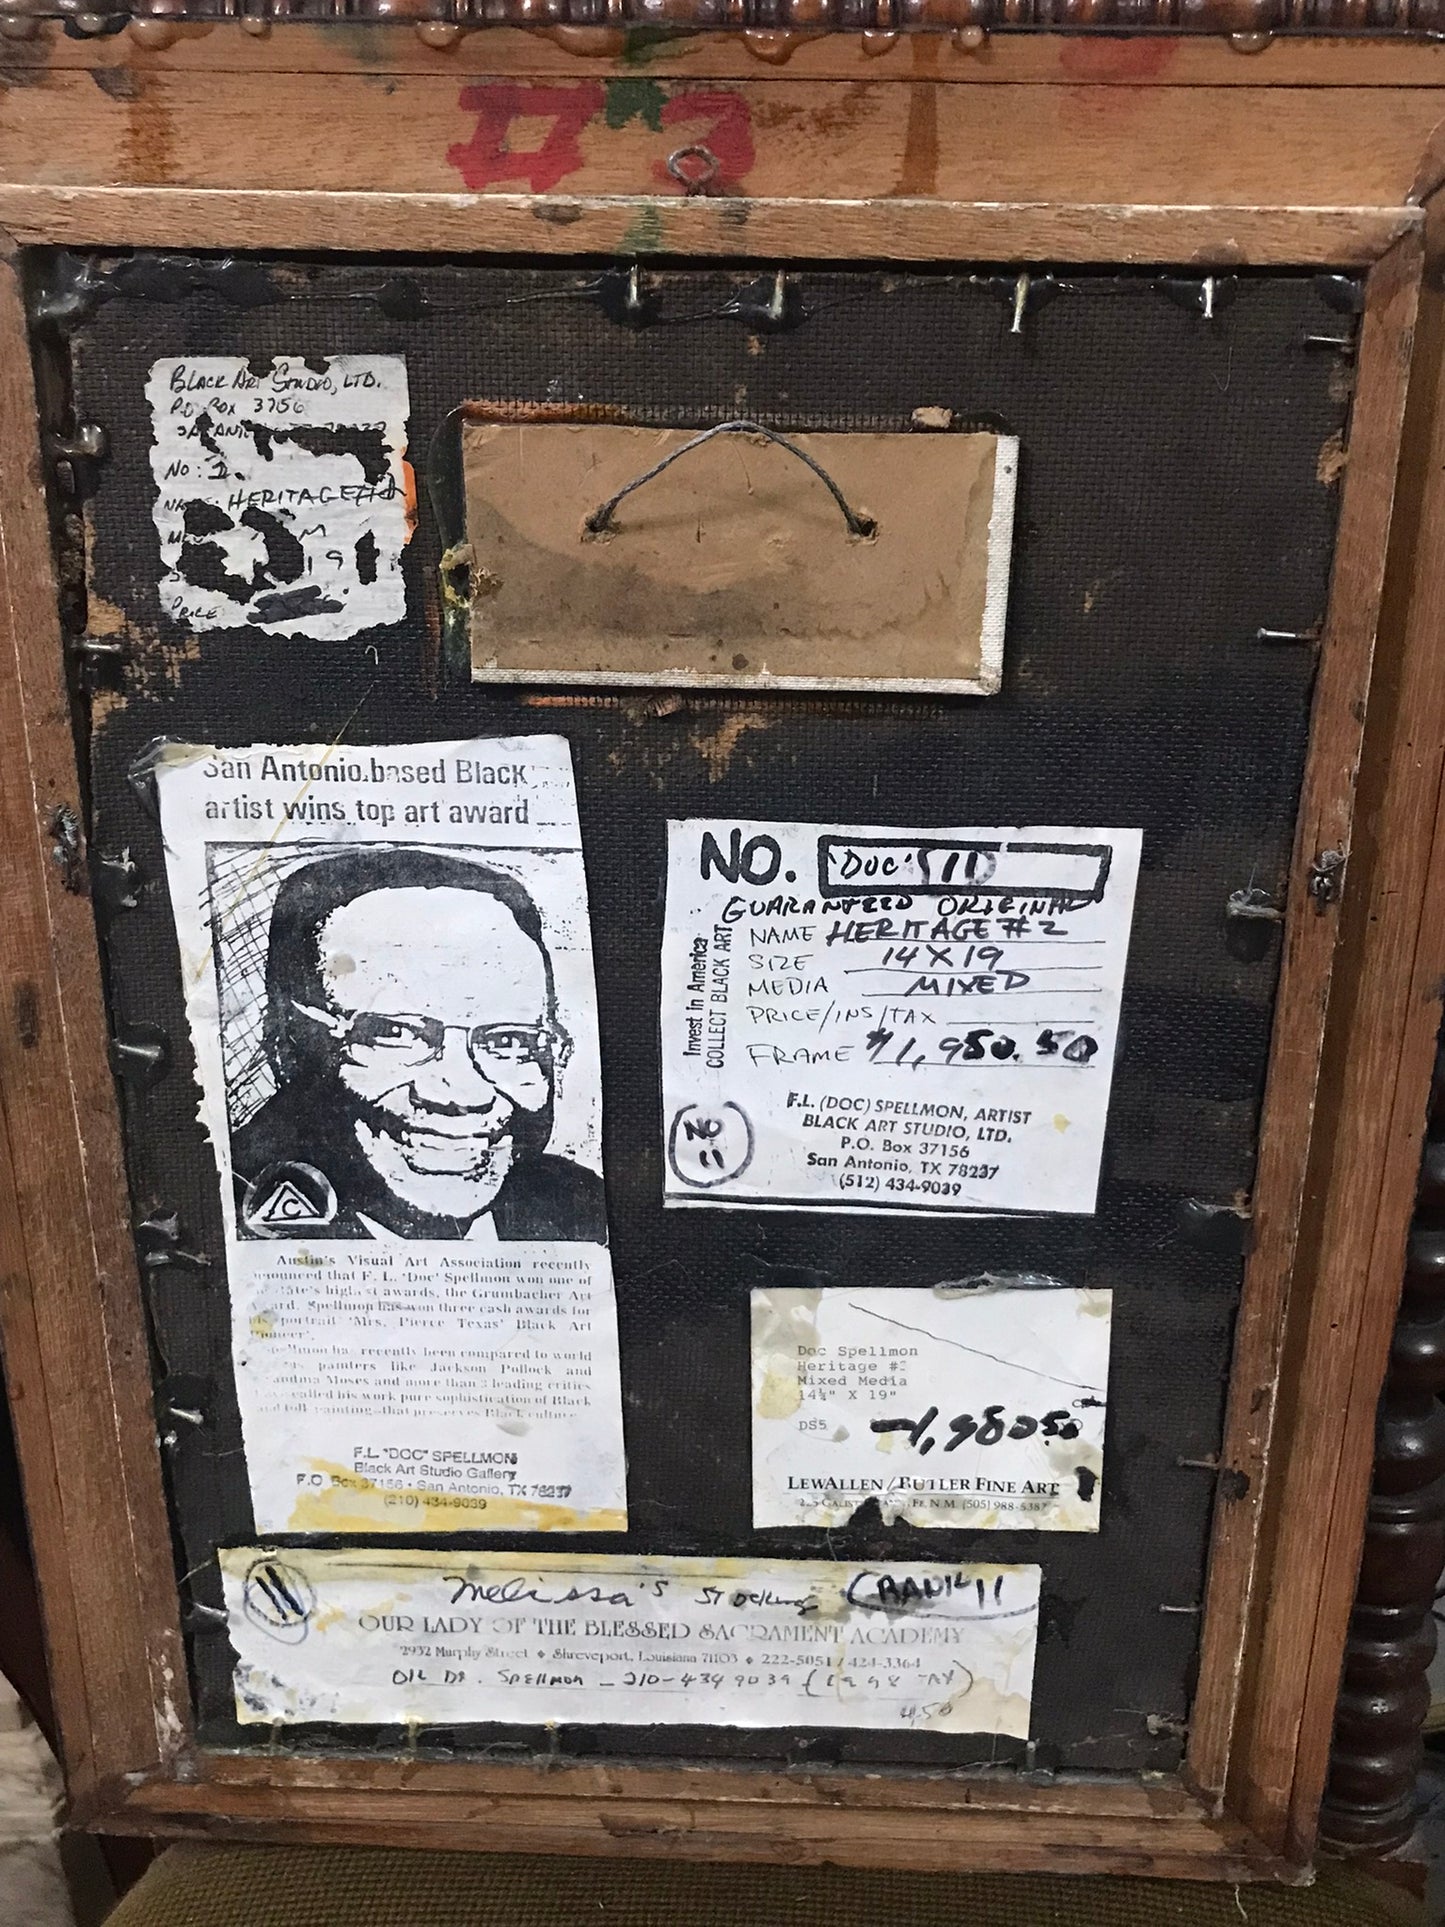 BLACK ART STUDIO, LTD.
P.O. BOX 3756
NO: 2.
HERITAGE #2
M
19
PRICE
San Antonio based Black
artist wins top art award
C
Austin's Visual Art Association recently
announced that F. L. 'Doc' Spellmon won one of
state's highest awards, the Grumbacher Art
Award. Spellmon has won three cash awards for
his portrait 'Mrs. Pierce Texas' Black Art
Pioneer'.
Spellmon has recently been compared to world
painters like Jackson Pollock and
Grandma Moses and more than 3 leading critics
have called his work pure sophistication of Black
and folk painting--that preserves Black culture.
F.L. "DOC" SPELLMON
Black Art Studio Gallery
P.O. Box 37156 • San Antonio, TX 78237
(210) 434-9039
NO. 'DOC' 11
GUARANTEED ORIGINAL
NAME HERITAGE #2
SIZE 14 X 19
MEDIA MIXED
PRICE/INS/TAX
FRAME $1,950.50
Invest in America
COLLECT BLACK ART
F.L. (DOC) SPELLMON, ARTIST
BLACK ART STUDIO, LTD.
P.O. Box 37156
San Antonio, TX 78237
(512) 434-9039
Doc Spellmon
Heritage #2
Mixed Media
14¼" X 19"
DS5 1,950.50
LEWALLEN/BUTLER FINE ART
FE, N.M. (505) 988-5387
11 Melissa's Stocking CRANK 11
OUR LADY OF THE BLESSED SACRAMENT ACADEMY
2932 Murphy Street ♦ Shreveport, Louisiana 71103 ♦ 222-5051 / 424-3364
SPELLMON - 210-434 9039 (1998 TAX)